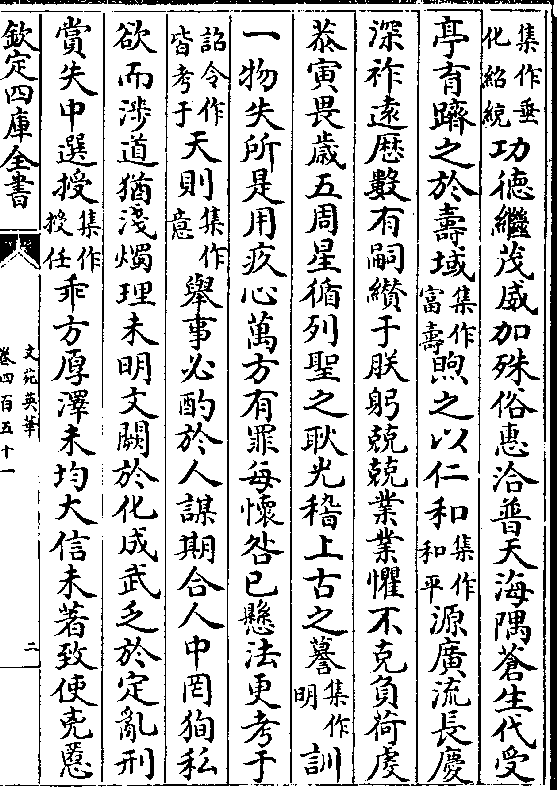 集作垂化紹統功德繼茂威加殊俗惠洽普天海隅蒼生代受
亭育躋之於壽域集作富壽煦之以仁和集作和平源廣流長慶
深祚遠歴數有嗣纉于朕躬兢兢業業懼不克負荷虔
恭寅畏歳五周星循列聖之耿光稽上古之謩集作明訓
一物失所是用疚心萬方有罪每懷咎已懸法更考于
詔令作皆考于天則集作意舉事必酌於人謀期合人中罔狥私
欲而涉道猶淺燭理未明文闕於化成武乏於定亂刑
賞失中選授集作授任乖方厚澤未均大信未著致使兇慝
欽定四庫全書
文苑英華
卷四百五十一
二